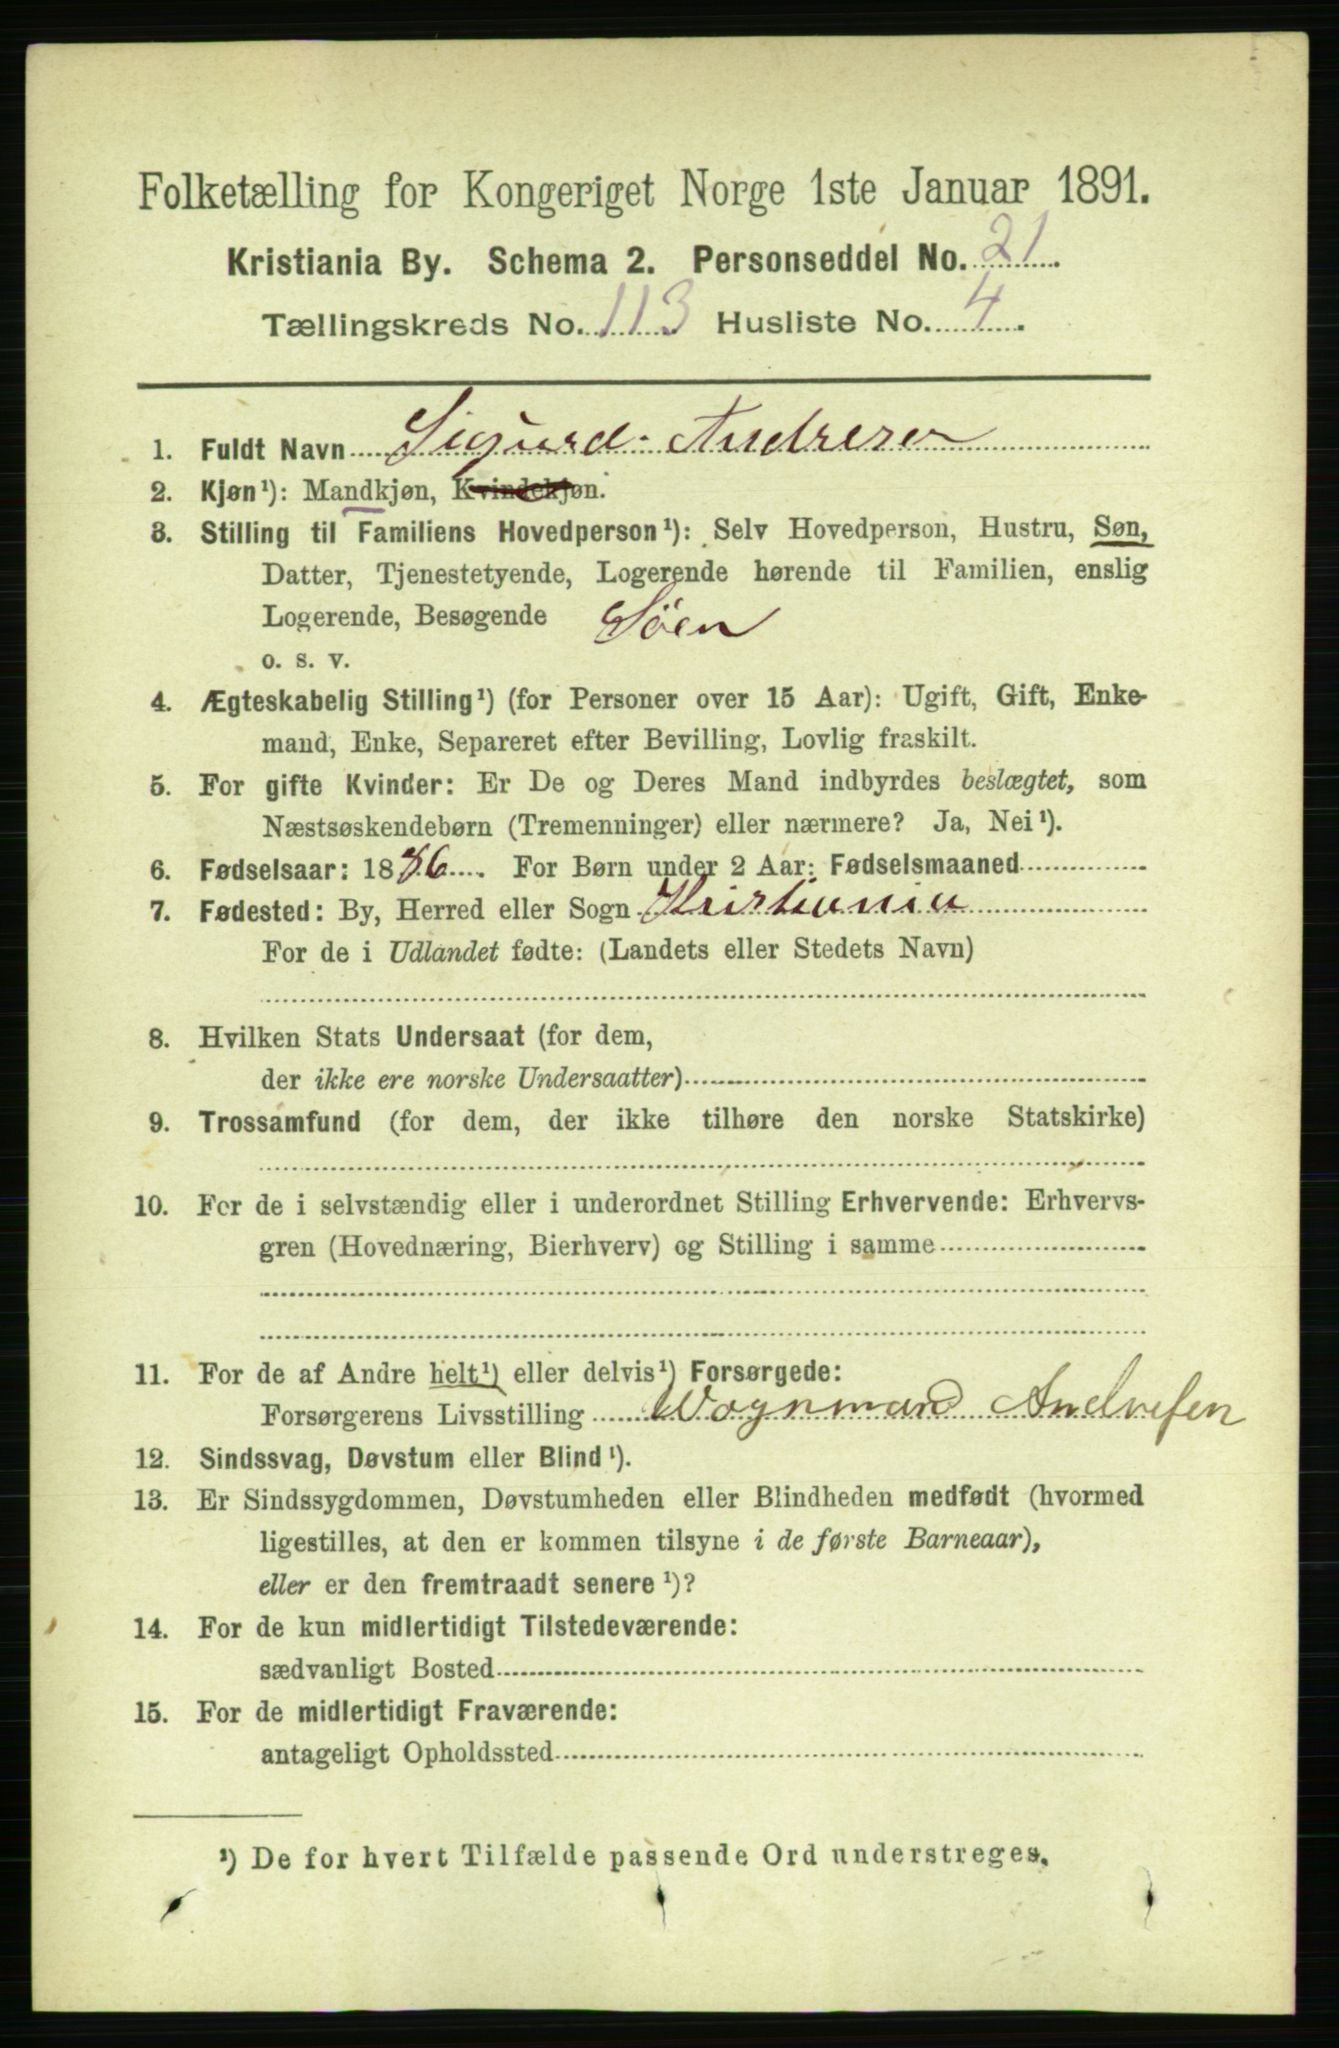 Folketælling for Kongeriget Norge 1ste Januar 1891.
Kristiania By. Schema 2. Personseddel No. 21.
Tællingskreds No. 113 Husliste No. 4.
1. Fuldt Navn Sigurd Andresen
2. Kjøn¹): Mandkjøn, Kvindekjøn.
3. Stilling til Familiens Hovedperson¹): Selv Hovedperson, Hustru, Søn,
Datter, Tjenestetyende, Logerende hørende til Familien, enslig
Logerende, Besøgende Söen
o. s. v.
4. Ægteskabelig Stilling¹) (for Personer over 15 Aar): Ugift, Gift, Enke-
mand, Enke, Separeret efter Bevilling, Lovlig fraskilt.
5. For gifte Kvinder: Er De og Deres Mand indbyrdes beslægtet, som
Næstsøskendebørn (Tremenninger) eller nærmere? Ja, Nei¹).
6. Fødselsaar: 1886 For Børn under 2 Aar: Fødselsmaaned
7. Fødested: By, Herred eller Sogn Kristiania
For de i Udlandet fødte: (Landets eller Stedets Navn)
8. Hvilken Stats Undersaat (for dem,
der ikke ere norske Undersaatter)
9. Trossamfund (for dem, der ikke tilhøre den norske Statskirke)
10. For de i selvstændig eller i underordnet Stilling Erhvervende: Erhvervs-
gren (Hovednæring, Bierhverv) og Stilling i samme
11. For de af Andre helt¹) eller delvis¹) Forsørgede:
Forsørgerens Livsstilling Wognmand Andresen
12. Sindssvag, Døvstum eller Blind¹).
13. Er Sindssygdommen, Døvstumheden eller Blindheden medfødt (hvormed
ligestilles, at den er kommen tilsyne i de første Barneaar),
eller er den fremtraadt senere¹)?
14. For de kun midlertidigt Tilstedeværende:
sædvanligt Bosted
15. For de midlertidigt Fraværende:
antageligt Opholdssted
¹) De for hvert Tilfælde passende Ord understreges.